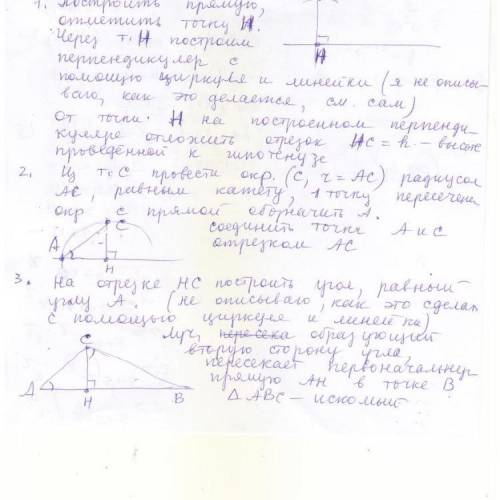 1. Построить прямую,
отметить точку H.
Через т. H построим
перпендикуляр с
помощью циркуля и линейки (я не описы-
ваю, как это делается, см. сам)
От точки H на построенном перпенди-
куляре отложить отрезок HC = h - высоте
проведённой к гипотенузе
H
2. Из т. C провести окр. (C, r = AC) радиусом
AC, равным катету, 1 точку пересечения
окр с прямой обозначит A.
соединить точки A и C
отрезком AC
C
C
A
H
3. На отрезке HC построить угол, равный
углу A. (не описываю, как это сделать
с помощью циркуля и линейки)
Луч, пересека образующий
вторую сторону угла,
пересекает первоначальную
прямую AH в точке B
Δ ABC - искомый
C
A
H
B